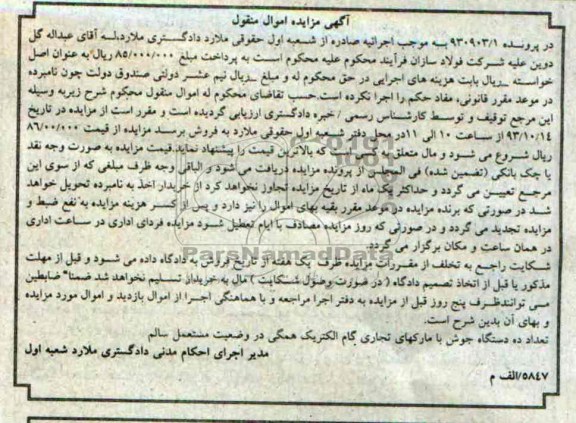 آگهی مزایده اموال منقول
در پرونده ۹۳۰۹۰۳/۱ به موجب اجرائیه صادره از شعبه اول حقوقی ملارد دادگستری ملارد،له آقای عبداله گل
دوین علیه شرکت فولاد سازان فرآیند محکوم علیه محکوم است به پرداخت مبلغ ۸۵/۰۰۰/۰۰۰ ریال به عنوان اصل
خواسته _ریال بابت هزینه های اجرایی در حق محکوم له و مبلغ _ریال نیم عشر دولتی صندوق دولت چون نامبرده
در موعد مقرر قانونی، مفاد حکم را اجرا نکرده است.حسب تقاضای محکوم له اموال منقول محکوم شرح زیربه وسیله
این مرجع توقیف و توسط کارشناس رسمی / خبره دادگستری ارزیابی گردیده است و مقرر است از مزایده در تاریخ
۹۳/۱۰/۱۴ از ساعت ۱۰ الی ۱۱در محل دفتر شعبه اول حقوقی ملارد به فروش برسد مزایده از قیمت ۸۶/۰۰/۰۰۰
ریال شروع می شود و مال متعلق به کسی است که بالاترین قیمت را پیشنهاد نماید.قیمت مزایده به صورت وجه نقد
یا چک بانکی (تضمین شده) فی المجلس از برنده مزایده دریافت می شود و الباقی وجه ظرف مبلغی که از سوی این
مرجع تعیین می گردد و حداکثر یک ماه از تاریخ مزایده تجاوز نخواهد کرد از خریدار اخذ به نامبرده تحویل خواهد
شد در صورتی که برنده مزایده در موعد مقرر بقیه بهای اموال را نپردازد و پس از کسر هزینه مزایده به نفع ضبط و
مزایده تجدید می گردد و در صورتی که روز مزایده مصادف با ایام تعطیل شود مزایده فردای اداری در ساعت اداری
در همان ساعت و مکان برگزار می گردد.
شکایت راجع به تخلف از مقررات مزایده ظرف یک هفته از تاریخ فروش به دادگاه داده می شود و قبل از مهلت
مذکور یا قبل از اتخاذ تصمیم دادگاه ( در صورت وصول شکایت ) مال به خریدار تسلیم نخواهد شد ضمنا"
می توانندظرف پنج روز قبل از مزایده به دفتر اجرا مراجعه و با هماهنگی اجرا از اموال بازدید و اموال مورد مزایده
و بهای آن بدین شرح است.
تعداد ده دستگاه جوش با مارکهای تجاری گام الکتریک همگی در وضعیت مستعمل سالم
مدیر اجرای احکام مدنی دادگستری ملارد شعبه اول
۵۸۴۷/الف م
ParsNamadData